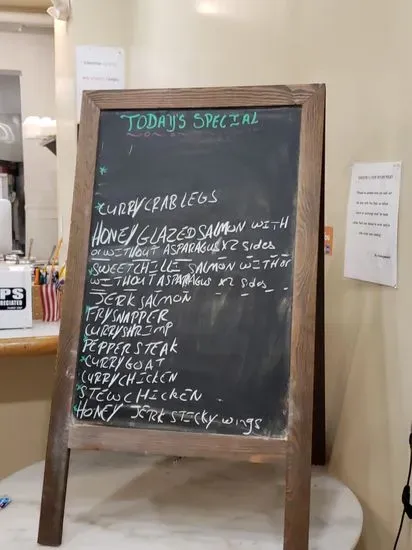 TODAY'S SPECIAL
*
*CURRY CRAB LEGS
HONEY GLAZED SALMON WITH
OR WITHOUT ASPARAGUS X2 Sides
*SWEET CHILLI SALMON WITH OR
WITHOUT ASPARAGUS X2 Sides
JERK SALMON
FRY SNAPPER
CURRY SHRIMP
PEPPER STEAK
*CURRY GOAT
CURRY CHICKEN
*STEW CHICKEN
*HONEY JERK STICKY wings
PS